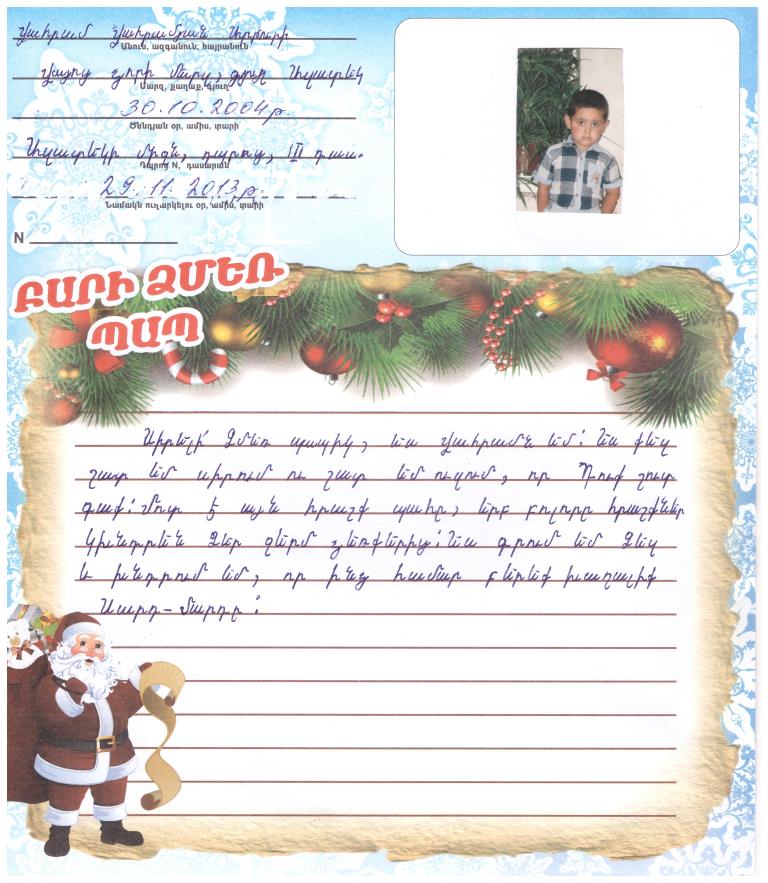 Վահրամ Վահրամյան Արթուրի
Անուն, ազգանուն, հայրանուն
Վայոց ձորի մարզ, գյուղ Ազատեկ
Մարզ, քաղաք, գյուղ
30.10.2004թ.
Ծննդյան օր, ամիս, տարի
Ազատեկի միջն. դպրոց, III դաս.
Դպրոց N, դասարան
29.11.2013թ.
Նամակն ուղարկելու օր, ամիս, տարի
N
ԲԱՐԻ ՁՄԵՌ
ՊԱՊ
Սիրելի՛ Ձմեռ պապիկ, ես Վահրամն եմ: Ես քեզ
շատ եմ սիրում ու շատ եմ ուզում, որ Դուք շուտ
գաք: Մոտ է այն հրաշք պահը, երբ բոլորը հրաշքներ
կխնդրեն Ձեր ջերմ ձեռքերից: Ես գրում եմ Ձեզ
և խնդրում եմ, որ ինձ համար բերեք խաղալիք
Սարդ-մարդը: